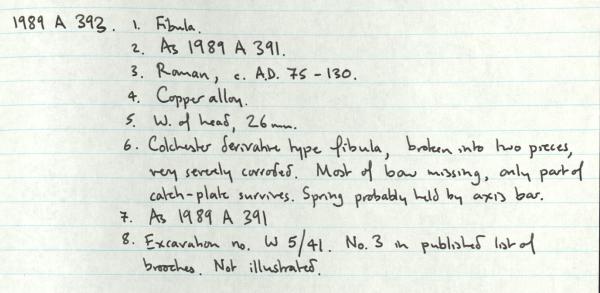 1989 A 393. 1. Fibula.
2. As 1989 A 391.
3. Roman, c. A.D. 75 - 130.
4. Copper alloy.
5. W. of head, 26mm.
6. Colchester derivative type fibula, broken into two pieces,
very severely corroded. Most of bow missing, only part of
catch-plate survives. Spring probably held by axis bar.
7. As 1989 A 391
8. Excavation no. W 5/41. No. 3 in published list of
brooches. Not illustrated.